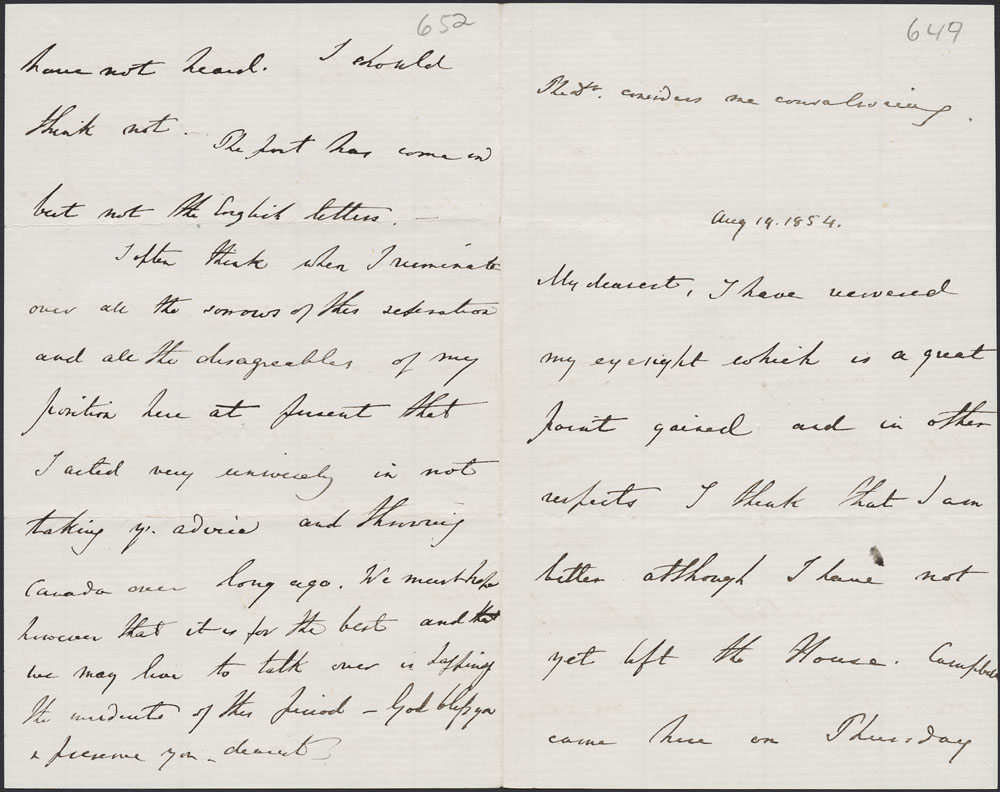 652
have not heard. I should
think not. The post has come in
but not the English letters. —
I often think when I ruminate
over all the sorrows of this seperation
and all the disagreeables of my
position here at present that
I acted very unwisely in not
taking yr. advice and throwing
Canada over long ago. We must hope
however that it is for the best and that
we may live to talk over in happiness
the incidents of this period — God bless you
& preserve you — dearest
649
The Dr. considers me convalescing.
Aug 19. 1854.
My dearest, I have recovered
my eyesight which is a great
point gained and in other
respects I think that I am
better although I have not
yet left the House. Campbell
came here on Thursday